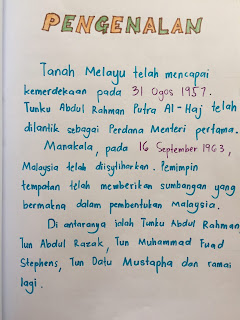 PENGENALAN
Tanah Melayu telah mencapai
kemerdekaan pada 31 Ogos 1957.
Tunku Abdul Rahman Putra Al-Haj telah
dilantik sebagai Perdana Menteri pertama.
Manakala, pada 16 September 1963,
Malaysia telah diisytiharkan. Pemimpin
tempatan telah memberikan sumbangan yang
bermakna dalam pembentukan Malaysia.
Di antaranya ialah Tunku Abdul Rahman
Tun Abdul Razak, Tun Muhammad Fuad
Stephens, Tun Datu Mustapha dan ramai
lagi.